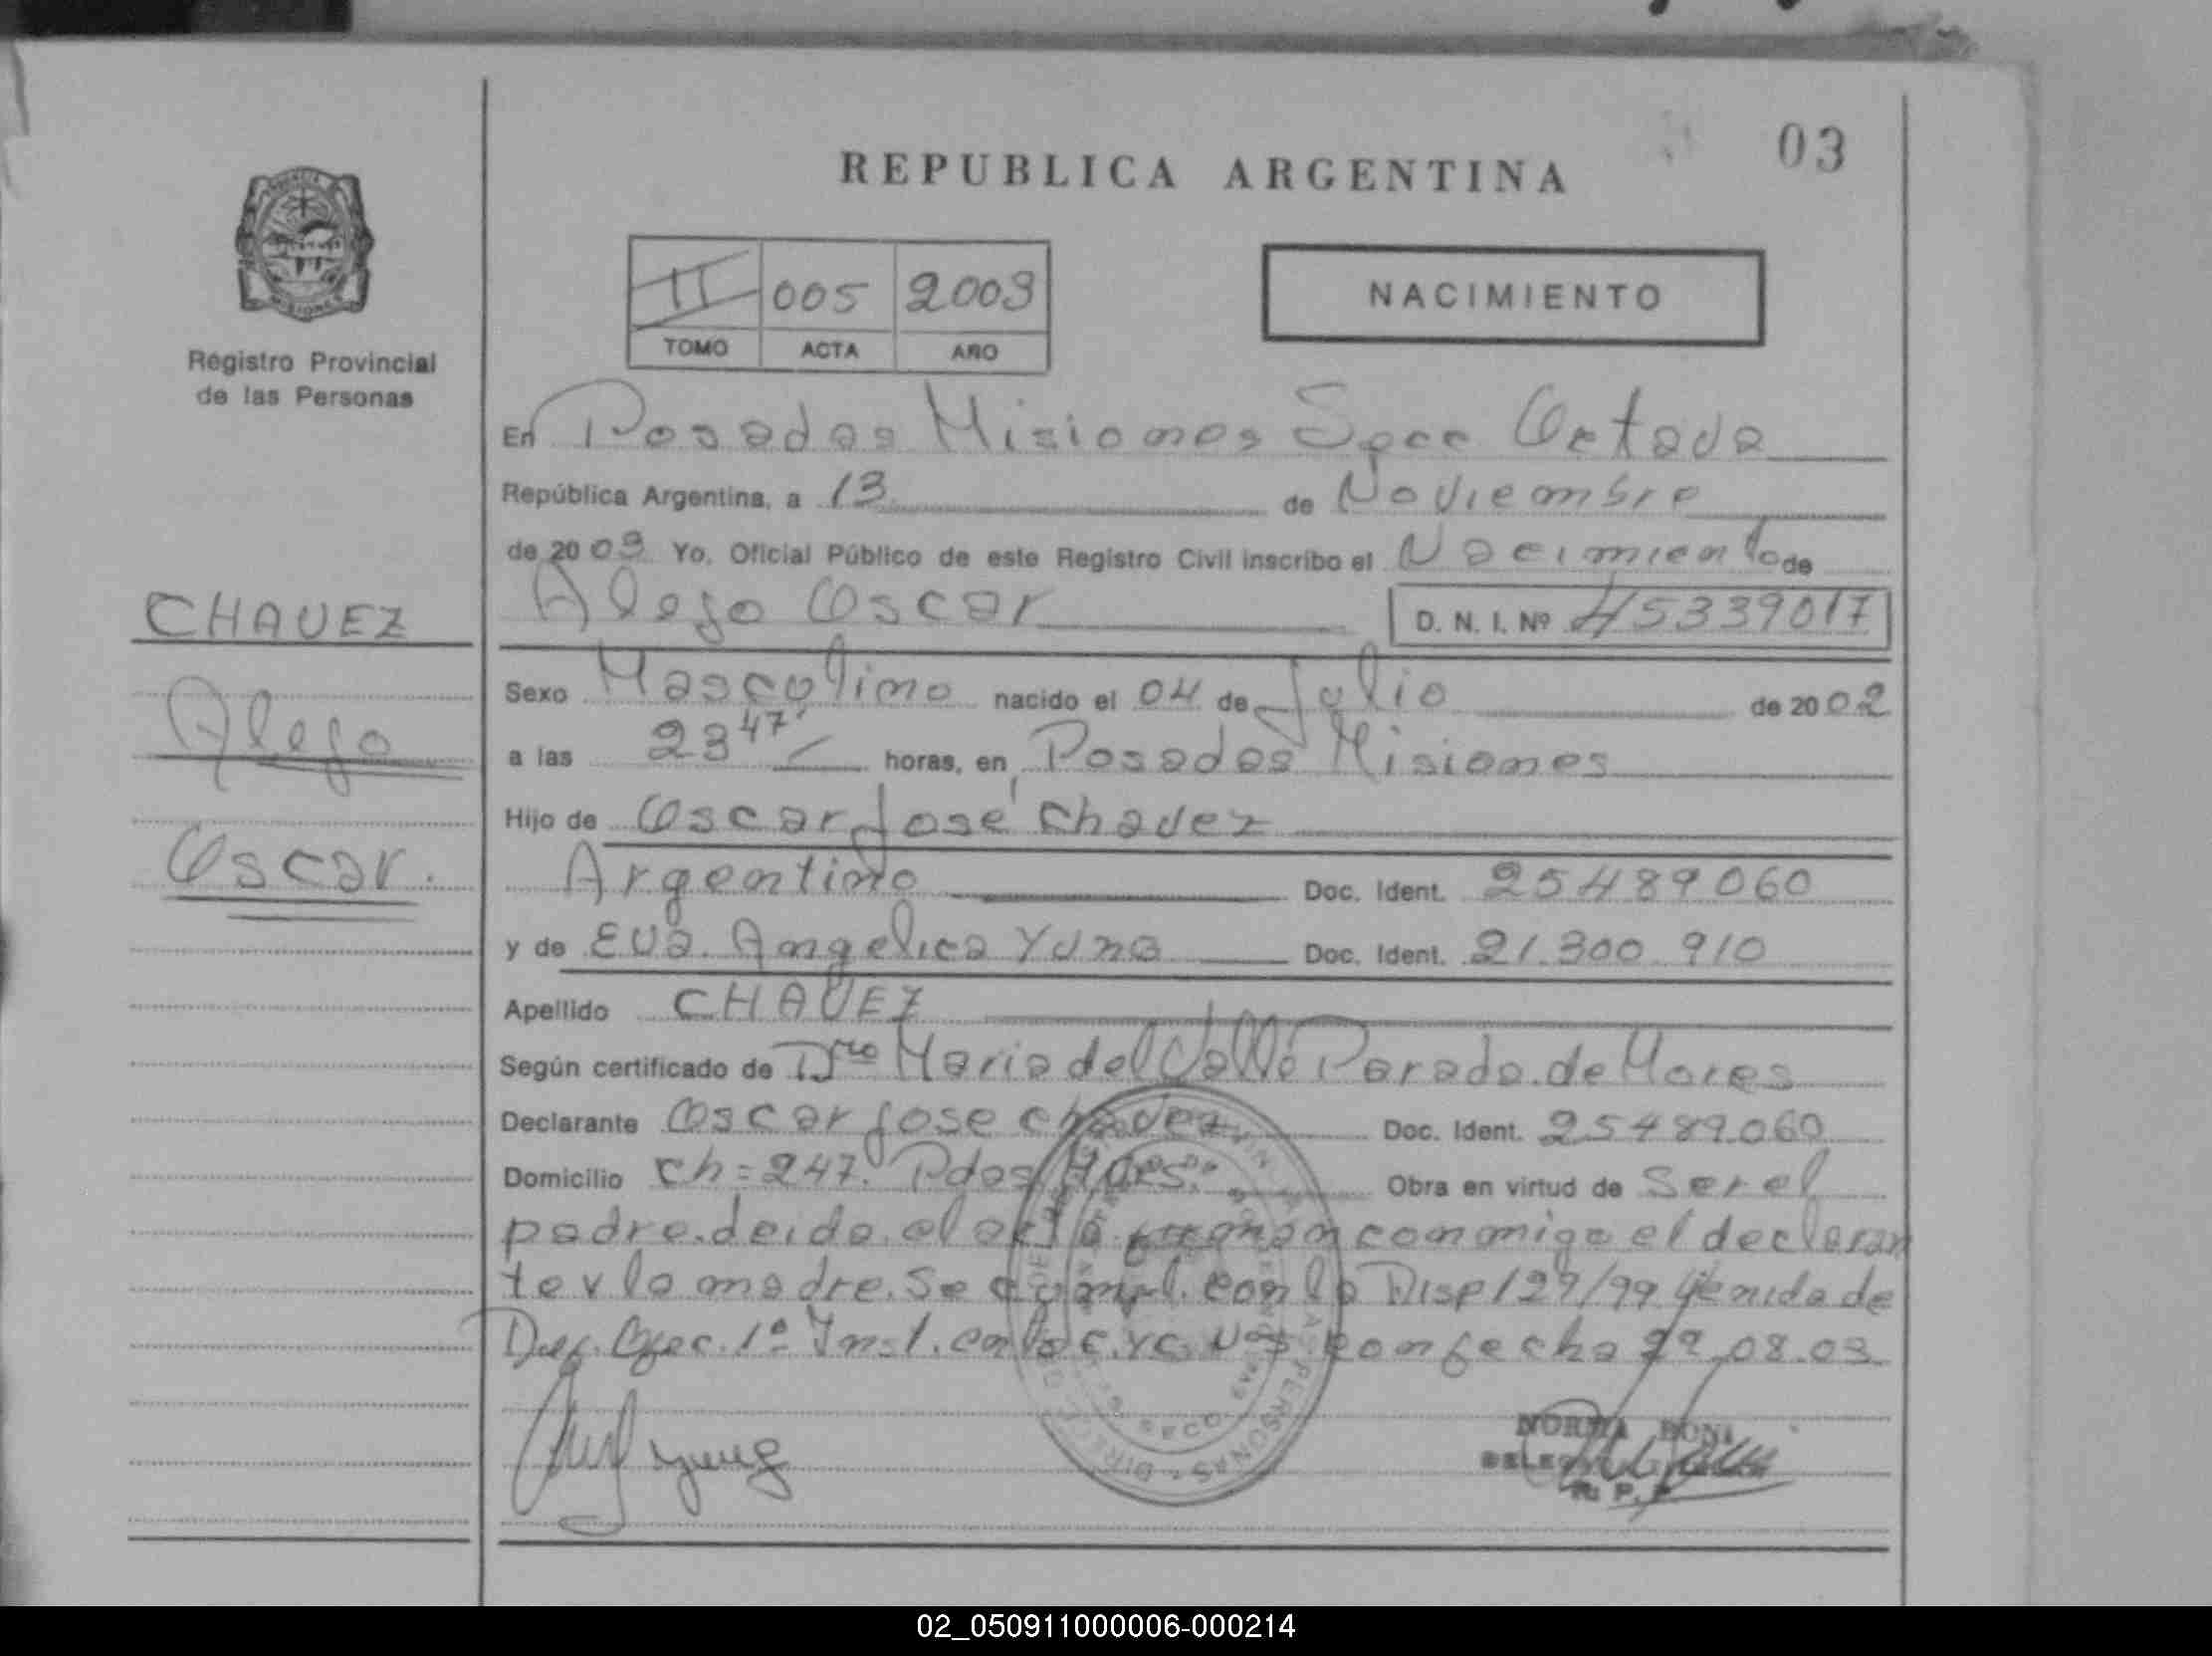 03
REPUBLICA ARGENTINA
II 005 2003
TOMO ACTA AÑO
NACIMIENTO
Registro Provincial
de las Personas
CHAVEZ
Alejo
Oscar.
En Posadas Misiones Secc Octava
República Argentina, a 13 de Noviembre
de 2003 Yo, Oficial Público de este Registro Civil inscribo el Nacimiento de
Alejo Oscar D. N. I. Nº 45339017
Sexo Masculino nacido el 04 de Julio de 2002
a las 23 47' horas, en Posadas Misiones
Hijo de Oscar José Chavez
Argentino Doc. Ident. 25489060
y de Eva Angelica Yung Doc. Ident. 21.300.910
Apellido CHAVEZ
Según certificado de Maria del Valle Parada de Mores
Declarante Oscar Jose Chavez Doc. Ident. 25489060
Domicilio Ch=247. Pdas Mnes. Obra en virtud de Ser el
padre. Leida el acta firman conmigo el declaran
te y la madre. Se cumpl. con la Disp 129/99 de
1º Inst. en lo C. y C. Nº 5 con fecha 08.03
NORMA BONI
R. P. P.
02_050911000006-000214